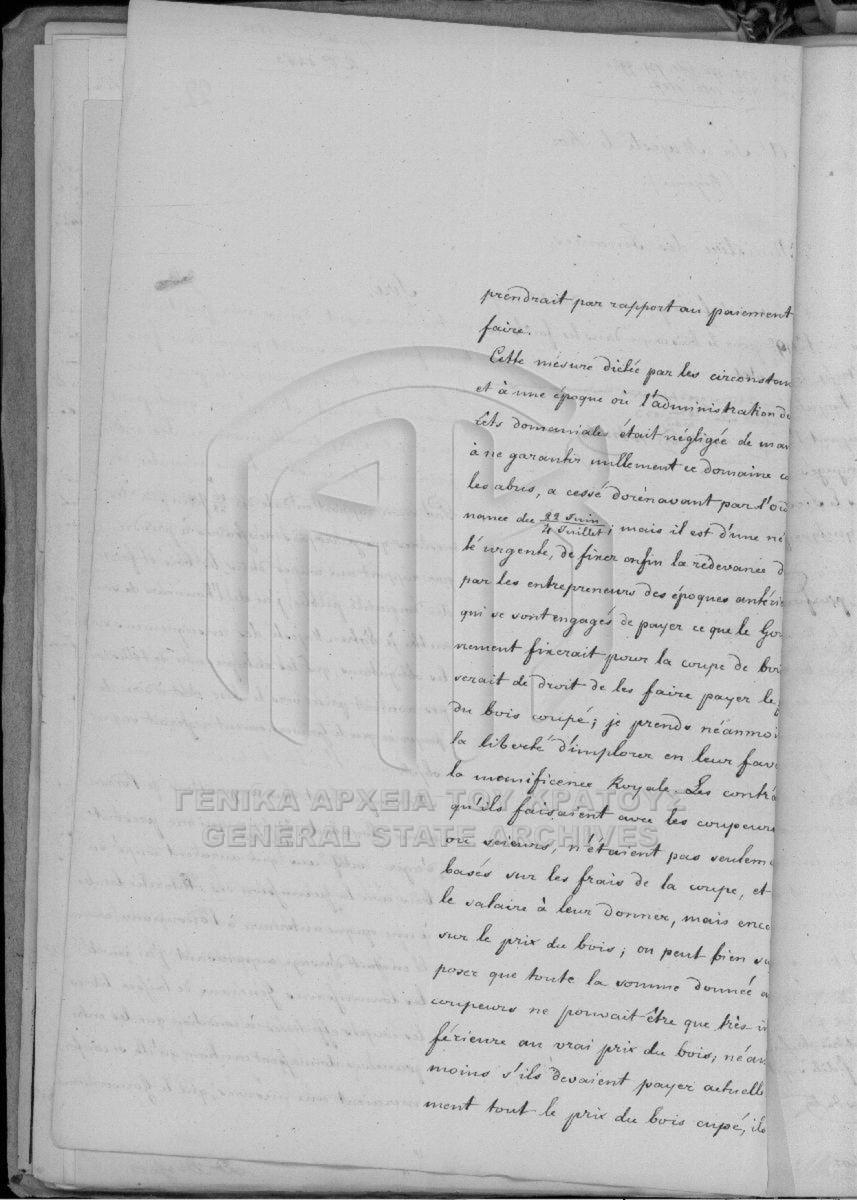 prendrait par rapport au paiement
faire.
Cette mésure dictée par les circonstan
et à une époque où l'administration de
rêts domaniales était négligée de man
à ne garantir nullement ce domaine co
les abus, a cessé dorénavant par l'ord
nance du 22 Juin / 4 Juillet; mais il est d'une né
té urgente, de fixer enfin la redevance d
par les entrepreneurs des époques antérie
qui se sont engagés de payer ce que le Gou
nement fixerait pour la coupe de boi
serait de droit de les faire payer le p
du bois coupé; je prends néanmoi
la liberté d'implorer en leur fav
la munificence Royale. Les contra
qu'ils faisaient avec les coupeurs
ou scieurs, n'étaient pas seuleme
basés sur les frais de la coupe, et
le salaire à leur donner, mais enco
sur le prix du bois; on peut bien su
poser que toute la somme donnée a
coupeurs ne pouvait être que très in
férieure au vrai prix du bois; néan
moins s'ils devaient payer actuelle
ment tout le prix du bois cupé, ils
ΓΕΝΙΚΑ ΑΡΧΕΙΑ ΤΟΥ ΚΡΑΤΟΥΣ
GENERAL STATE ARCHIVES